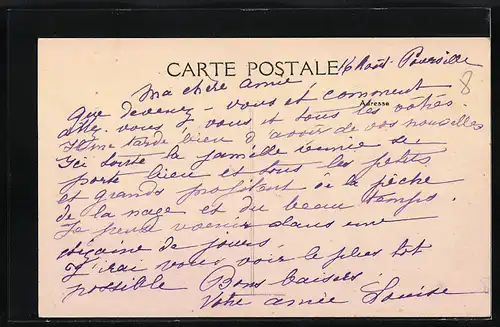 16 Août Pourville
CARTE POSTALE
8
Ma chère amie
Adresse
Que devenez-vous et comment
allez-vous, vous et tous les vôtres.
Il me tarde bien d'avoir de vos nouvelles
Ici toute la famille réunie se
porte bien et tous les petits
et grands profitent de la pêche
de la nage et du beau temps.
Je pense venir dans une
dizaine de jours
J'irai vous voir le plus tôt
possible Bons baisers
Votre amie Louise